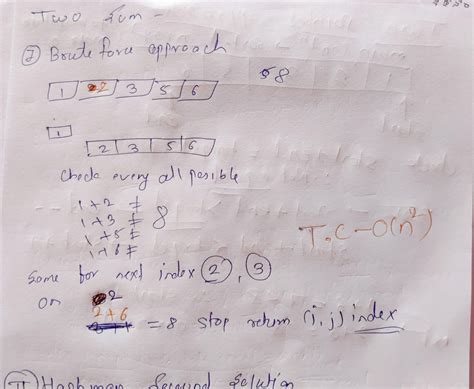 Two Sum -
I Brute force approach
1 2 3 5 6
8
i
2 3 5 6
Check every all possible
1+2 ≠
1+3 ≠ 8
1+5 ≠
1+6 ≠
T.C - O(n²)
Same for next index 2, 3
on 2
2+6 = 8 stop return (i, j) index
II Hashmap Second Solution